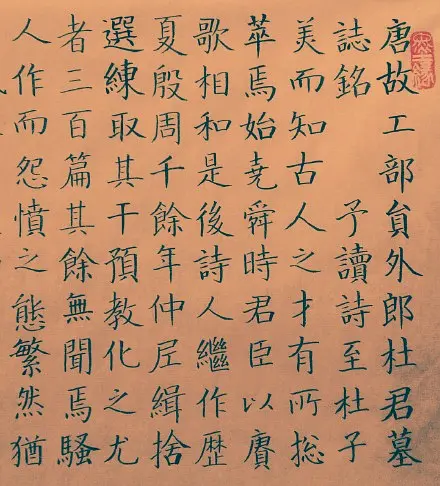 唐故工部貟外郎杜君墓
誌銘 予讀詩至杜子
美而知古人之才有所捴
萃焉始堯舜時君臣以賡
歌相和是後詩人繼作歴
夏殷周千餘年仲尼緝捨
選練取其干預教化之尤
者三百篇其餘無聞焉騷
人作而怨憤之態繁然猶